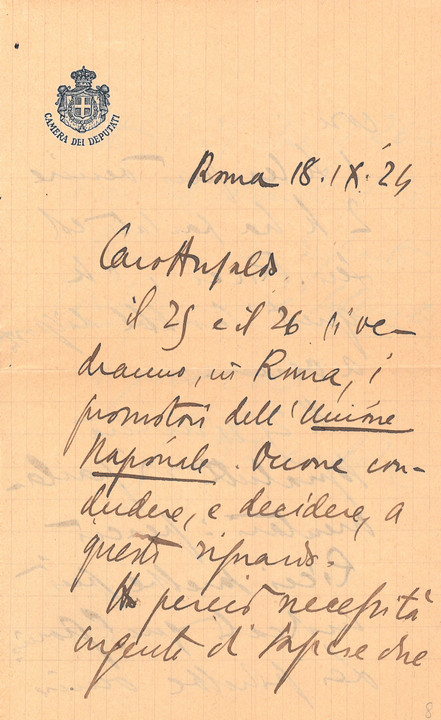 CAMERA DEI DEPUTATI
Roma 18.IX.24
Caro Ansaldo
il 25 e il 26 si ve-
dranno, in Roma, i
promotori dell'Unione
Nazionale. Occorre con-
cludere, e decidere, a
questo riguardo.
Ho perciò necessità
urgente di sapere due
8